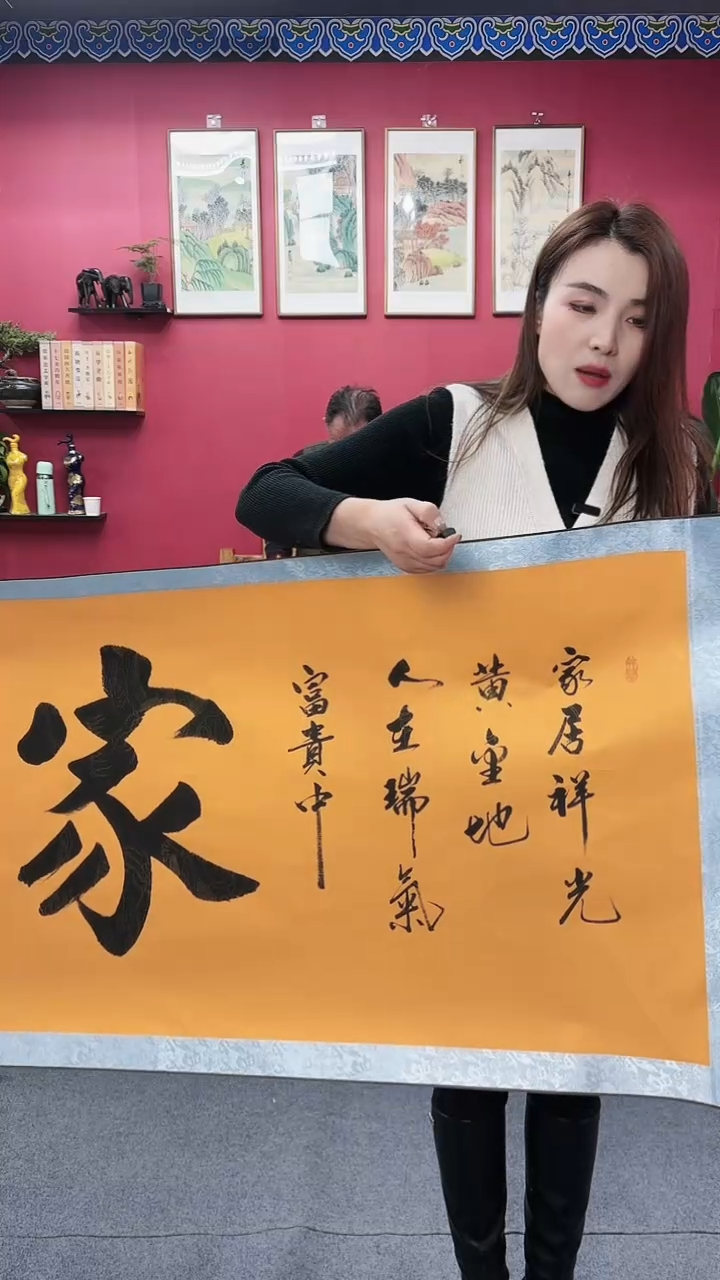 家居祥光
黄金地
人在瑞氣
富貴中
家